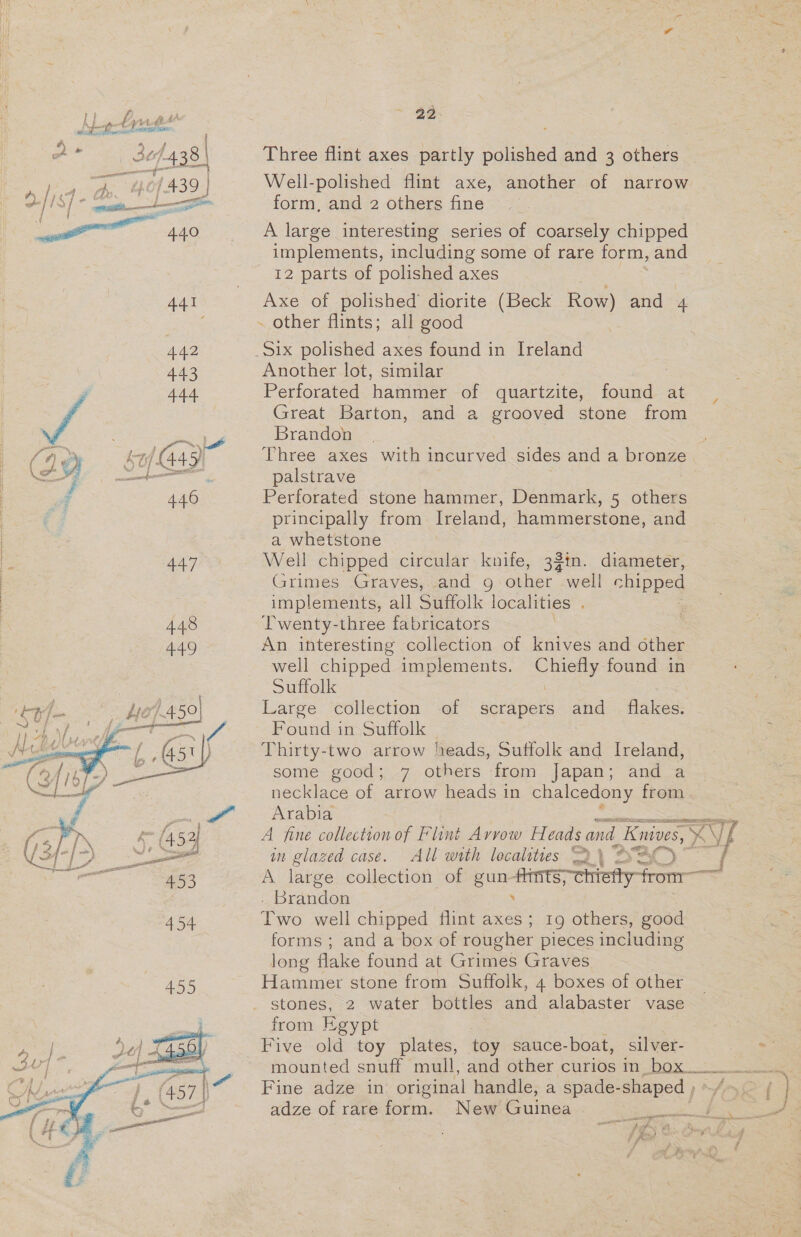 22
30/ 438 Three flint axes partly polished and 3 others
40/ 439 Well-polished flint axe, another of narrow
form, and 2 others fine
440 A large interesting series of coarsely chipped
implements, including some of rare form, and
12 parts of polished axes
441 Axe of polished diorite (Beck Row) and 4
other flints; all good
442 Six polished axes found in Ireland
443 Another lot, similar
444 Perforated hammer of quartzite, found at
Great Barton, and a grooved stone from
Brandon
445 Three axes with incurved sides and a bronze
palstrave
446 Perforated stone hammer, Denmark, 5 others
principally from Ireland, hammerstone, and
a whetstone
447 Well chipped circular knife, 3¾in. diameter,
Grimes Graves, and 9 other well chipped
implements, all Suffolk localities .
448 Twenty-three fabricators
449 An interesting collection of knives and other
well chipped implements. Chiefly found in
Suffolk
450 Large collection of scrapers and flakes.
Found in Suffolk
451 Thirty-two arrow heads, Suffolk and Ireland,
some good; 7 others from Japan; and a
necklace of arrow heads in chalcedony from
Arabia
452 A fine collection of Flint Arrow Heads and Knives,
in glazed case. All with localities
453 A large collection of gun-flints, chiefly from
Brandon
454 Two well chipped flint axes; 19 others, good
forms; and a box of rougher pieces including
long flake found at Grimes Graves
455 Hammer stone from Suffolk, 4 boxes of other
stones, 2 water bottles and alabaster vase
from Egypt
456 Five old toy plates, toy sauce-boat, silver-
mounted snuff mull, and other curios in box
457 Fine adze in original handle, a spade-shaped
adze of rare form. New Guinea